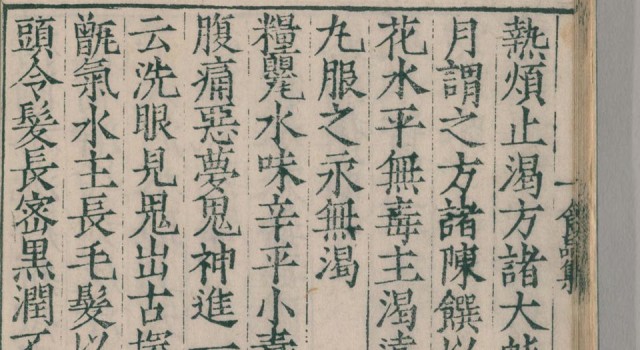 熱煩止渴方諸大蚌
月謂之方諸陳饌以
花水平無毒主渴遠
九服之永無渴
糧甖水味辛平小毒
腹痛惡夢鬼神進一
云洗眼見鬼出古塚
甑氣水主長毛髮以
頭令髮長密黒潤不